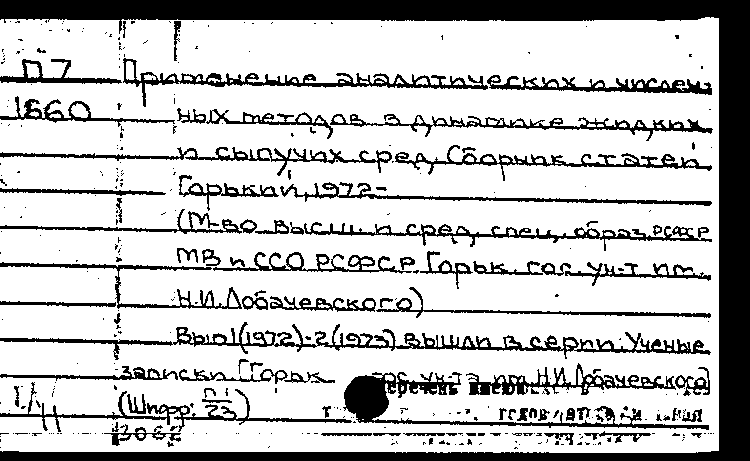 П7 Применение аналитических и числен-
1660 ных методов в динамике жидких
и сыпучих сред. Сборник статей
Горький, 1972-
(М-во высш. и сред. спец. образ. РСФСР
МВ и ССО РСФСР Горьк. гос. ун-т им.
Н.И. Лобачевского)
Вып1(1972)-2(1973) вышли в серии: Ученые
записки [Горьк. гос. ун-та им. Н.И. Лобачевского]
Перечень
(Шифр: П1/23)
3062